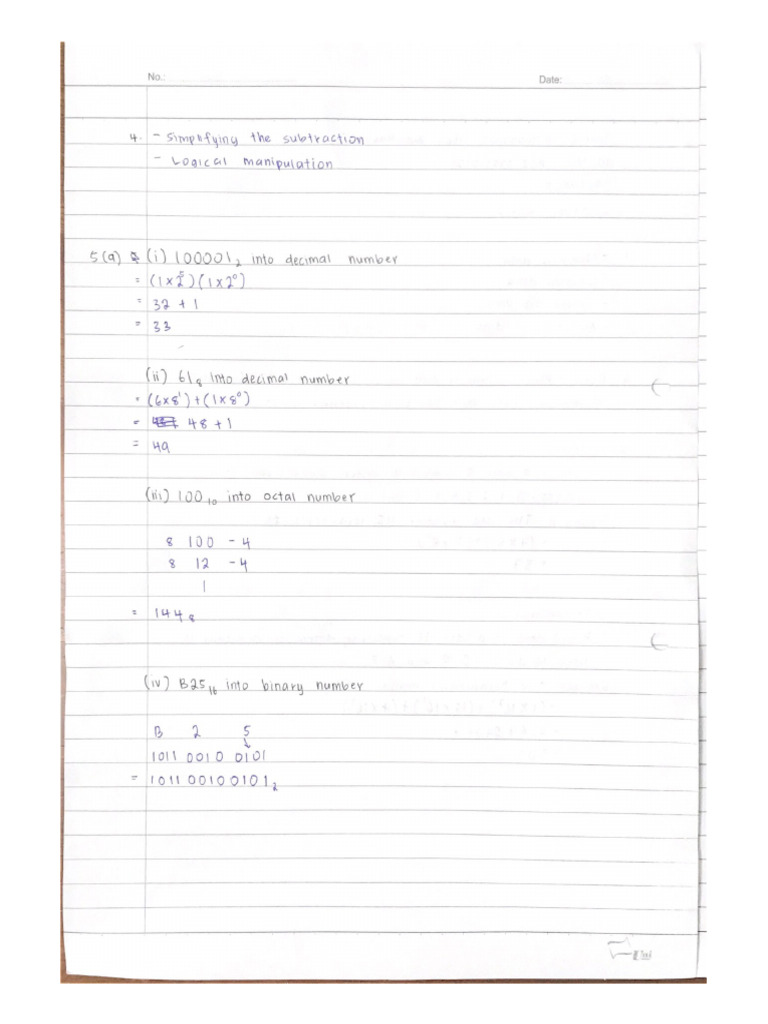 No.: Date:
4. - Simplifying the subtraction
- Logical manipulation
5(a) (i) 100001₂ into decimal number
= (1 x 2⁵)(1 x 2⁰)
= 32 + 1
= 33
(ii) 61₈ into decimal number
= (6x8¹) + (1x8⁰)
= 48 + 1
= 49
(iii) 100₁₀ into octal number
8 100 - 4
8 12 - 4
1
= 144₈
(iv) B25₁₆ into binary number
B 2 5
1011 0010 0101
= 101100100101₂